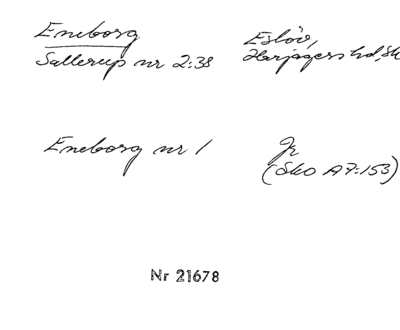 Eneborg
Sallerup nr 2:38
Eslöv,
Harjagers hd, Sk
Eneborg nr 1
Jr
(Sko A7:153)
Nr 21678